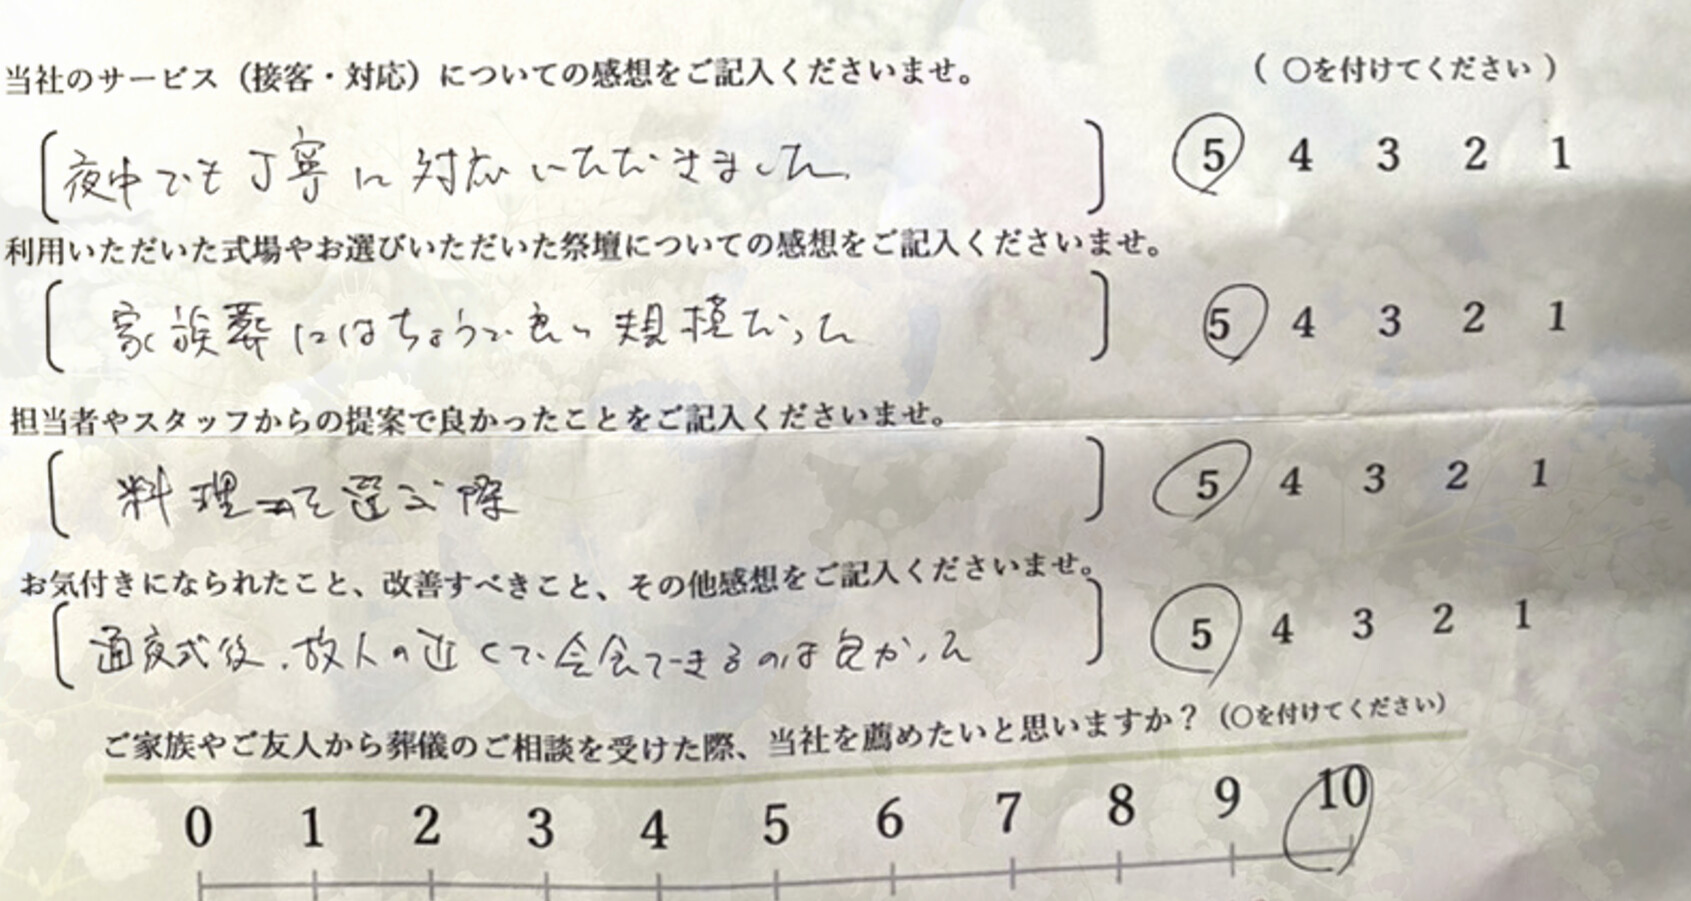 当社のサービス（接客・対応）についての感想をご記入くださいませ。 （ ○を付けてください ）
夜中でも丁寧に対応いただきました。 5 4 3 2 1
利用いただいた式場やお選びいただいた祭壇についての感想をご記入くださいませ。
家族葬にはちょうど良い規模だった 5 4 3 2 1
担当者やスタッフからの提案で良かったことをご記入くださいませ。
料理を選ぶ際 5 4 3 2 1
お気付きになられたこと、改善すべきこと、その他感想をご記入くださいませ。
通夜式後、故人の近くで会食できるのは良かった 5 4 3 2 1
ご家族やご友人から葬儀のご相談を受けた際、当社を薦めたいと思いますか？（○を付けてください）
0 1 2 3 4 5 6 7 8 9 10